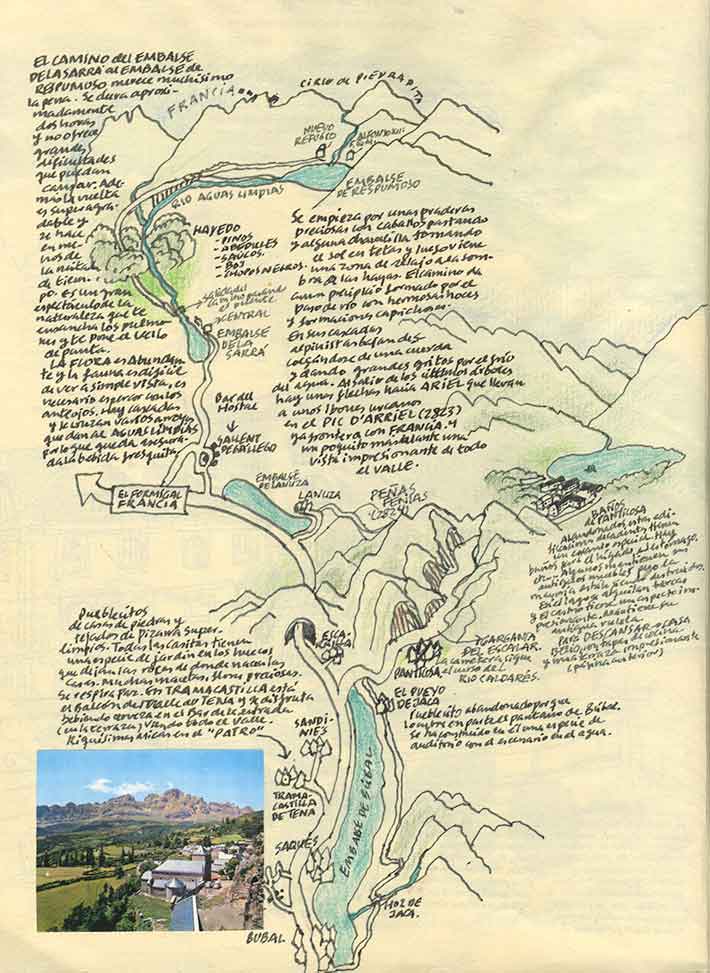 EL CAMINO del EMBALSE
DE LA SARRA al EMBALSE de
RESPUMOSO, merece muchísimo
la pena. Se dura aproxi-
madamente
dos horas
y no ofrece
grandes
dificultades
que puedan
cansar. Ade-
más la vuelta
es superagra-
dable y
se hace
en me-
nos de
la mitad
de tiem-
po. Es un gran
espectáculo de la
naturaleza que te
ensancha los pulmo-
nes y te pone el vello
de punta.
LA FLORA es abundan-
te y la fauna es difícil
de ver a simple vista, es
necesario esperar con los
anteojos. Hay cascadas
y se cruzan varios arroyos
que dan al AGUAS LIMPIAS
por lo que queda asegura-
da la bebida fresquita.
FRANCIA
CIRCO de PIEDRAFITA
NUEVO
REFUGIO
ALFONSO XIII
EMBALSE
DE RESPUMOSO
RIO AGUAS LIMPIAS
HAYEDO
- PINOS
- ABEDULES
- SAUCOS
- BOJ
- CHOPOS NEGROS
Salida del
camino pasando
el puente
CENTRAL
EMBALSE
DE LA
SARRA
Se empieza por unas praderas
preciosas con caballos pastando
y alguna tomando
el sol en tetas y luego viene
una zona de relajo a la som-
bra de las hayas. El camino da
a un precipicio formado por el
paso de río con hermosas hoces
y formaciones caprichosas.
En sus cascadas
alpinistas bajan des-
colgándose de una cuerda
y dando grandes gritos por el frío
del agua. Al salir de los últimos árboles
hay unas flechas hacia ARIEL que llevan
a unos Ibones
en el PIC D'ARRIEL (2823)
ya frontera con FRANCIA. Y
un poquito más adelante una
vista impresionante de todo
el valle.
Bar del
Hostal
SALLENT
DE GÁLLEGO
EL FORMIGAL
FRANCIA
EMBALSE
DE LANUZA
LANUZA
PEÑAS
(2825)
BAÑOS
de PANTICOSA
Abandonados, estos edi-
ficaciones decadentes tienen
un encanto especial. Hay
baños para el hígado, el estómago,
etc. Algunos mantienen sus
antiguos muebles pero la
mayoría están siendo destruidos.
En el lago se alquilan barcas
y el casino tiene un aspecto im-
presionante. Mantiene su
antigua ruleta.
Para DESCANSAR. CASA
BELIO, con tapas de cocina
y una terraza impresionante
(página anterior)
Pueblecitos
de casas de piedra y
tejados de Pizarra super-
limpios. Todas las casitas tienen
una especie de jardín en los huecos
que dejan las rocas de donde nacen las
casas. Muchas macetas, flores preciosas.
Se respira Paz. En TRAMACASTILLA está
el Balcón del Valle de TENA y se disfruta
bebiendo cerveza en el Bar de la entrada
(en la terraza) viendo todo el valle.
Riquísimas migas en el "PATRO"
ESCA-
RRILLA
PANTICOSA
GARGANTA
DEL ESCALAR.
La carretera sigue
al curso del
RIO CALDARÉS.
EL PUEYO
DE JACA
Pueblecito abandonado porque
lo cubre en parte el pantano de Búbal.
Se ha construido en él una especie de
auditorio con el escenario en el agua.
SANDI-
NIES
TRAMA-
CASTILLA
DE TENA
SAQUÉS
EMBALSE DE BÚBAL
HOZ DE
JACA.
BÚBAL